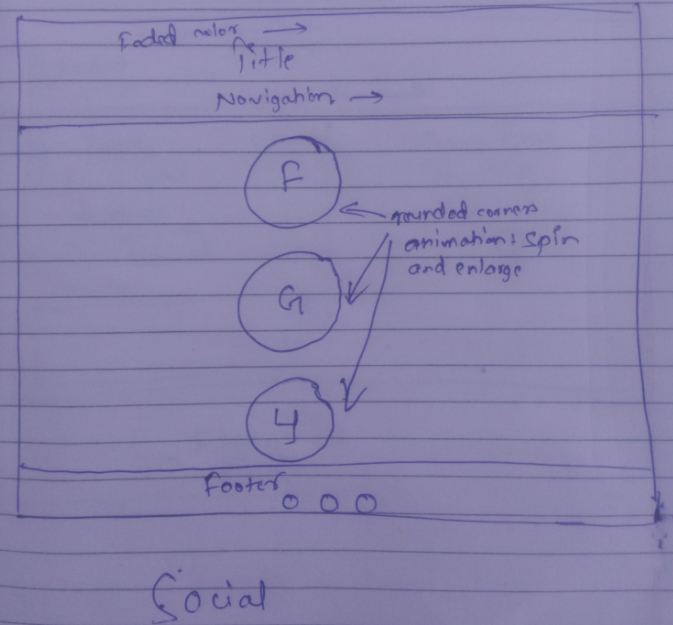 Faded color →
Title
Navigation →
F
rounded corners
animation: spin
and enlarge
G
y
Footer
Social